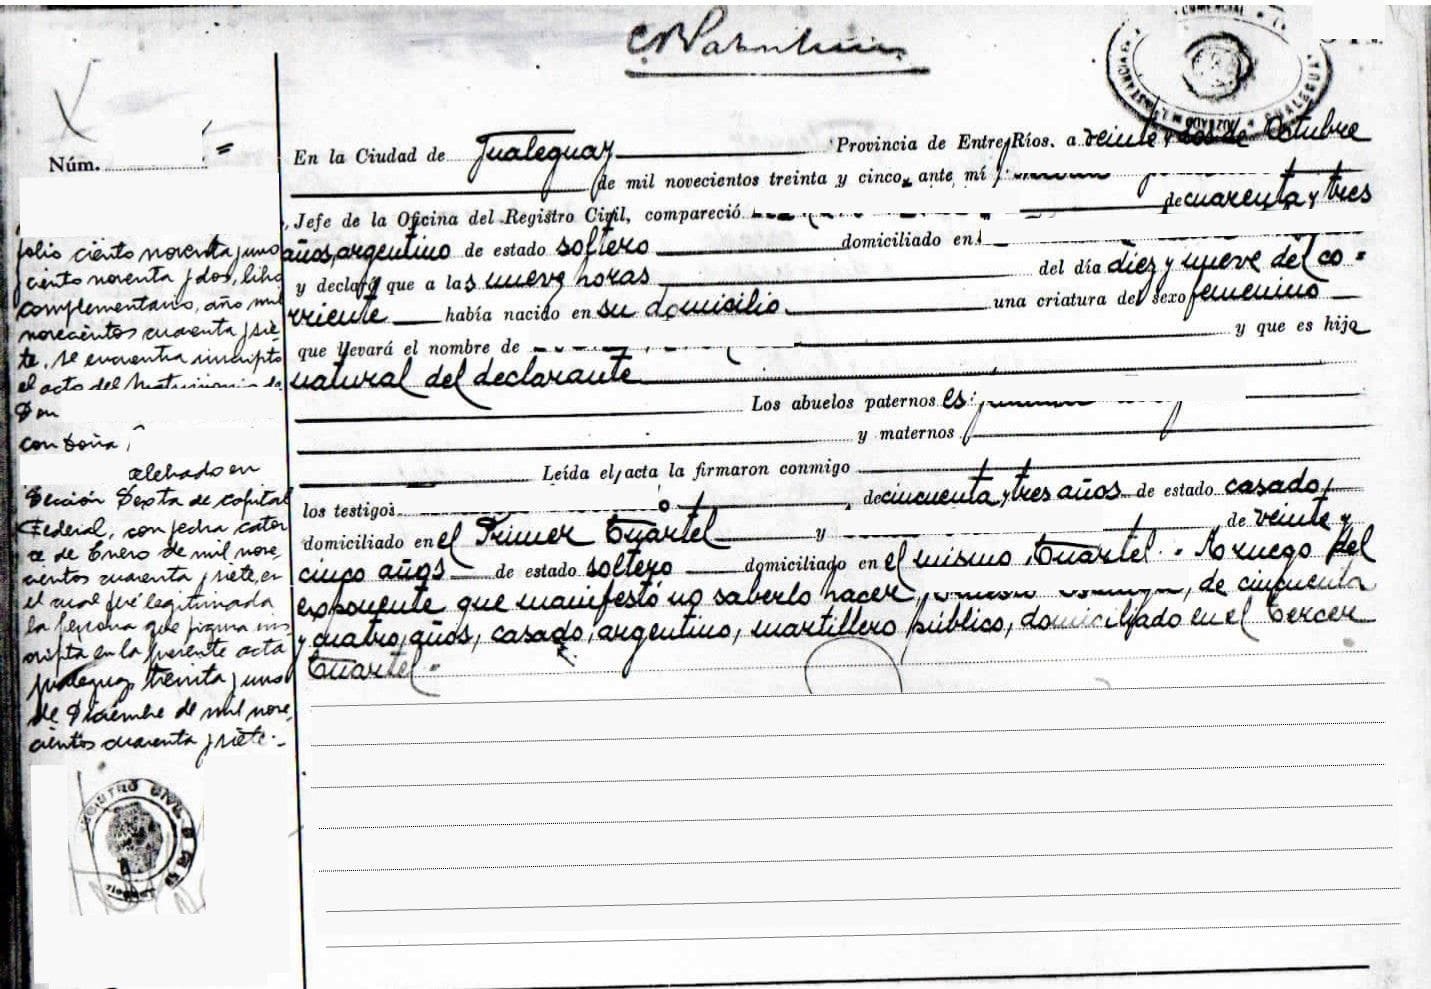 COMERCIAL
JUZGADO
GUALEGUAY
Núm. =
En la Ciudad de Gualeguay Provincia de Entre Ríos. a veinte y dos de Octubre
de mil novecientos treinta y cinco, ante mí
, Jefe de la Oficina del Registro Civil, compareció de cuarenta y tres
años, argentino de estado soltero domiciliado en
y declaró que a las nueve horas del día diez y nueve del co=
rriente había nacido en su domicilio una criatura del sexo femenino
que llevará el nombre de y que es hija
natural del declarante
Los abuelos paternos es:
y maternos
Leída el acta la firmaron conmigo
los testigos de cincuenta y tres años de estado casado
domiciliado en el Primer Cuartel y de veinte y
cinco años de estado soltero domiciliado en el mismo Cuartel. A ruego del
exponente que manifestó no saberlo hacer, de cincuenta
y cuatro años, casado, argentino, martillero público, domiciliado en el Tercer
Cuartel.
folio ciento noventa y uno
ciento noventa y dos, libro
complementario, año mil
novecientos cuarenta y sie-
te, se encuentra inscripto
el acto del Matrimonio de
Don
con Doña
celebrado en
Sección Sexta de Capital
Federal, con fecha cator
ce de Enero de mil nove-
cientos cuarenta y siete, en
el cual fué legitimada
la persona que figura ins
cripta en la presente acta
Gualeguay, treinta y uno
de Diciembre de mil nove-
cientos cuarenta y siete.-
REGISTRO CIVIL